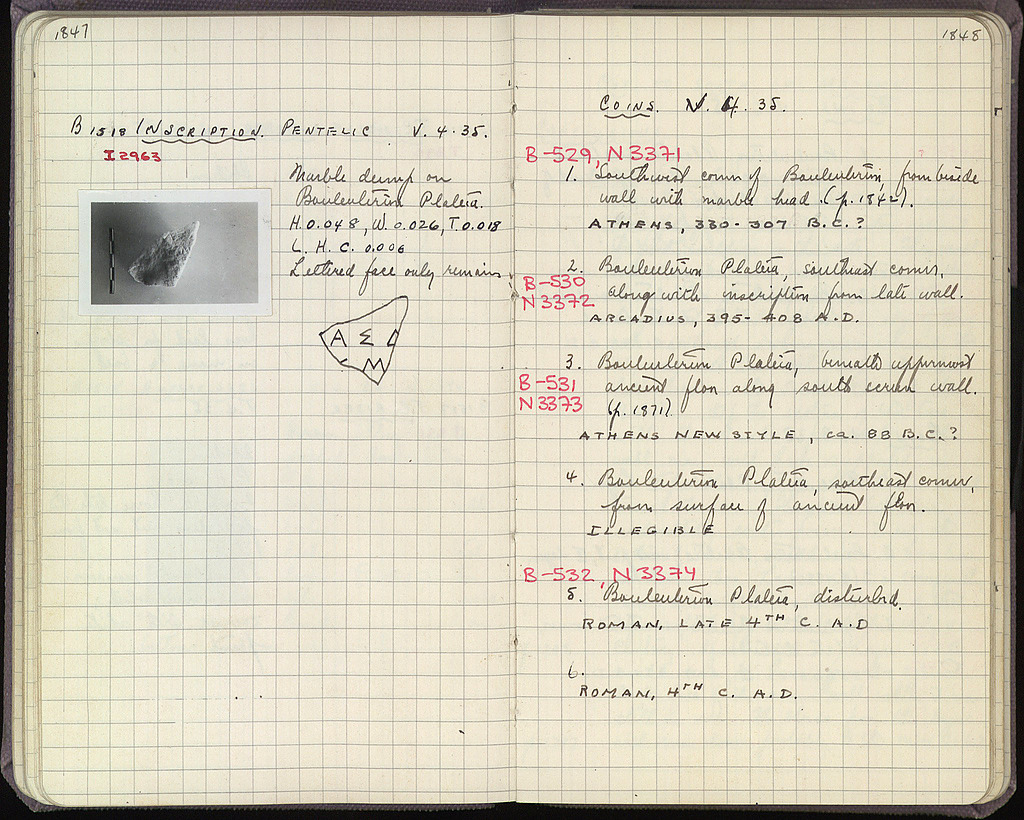 1847
B 1518 INSCRIPTION. PENTELIC V. 4. 35.
I 2963
Marble dump on
Bouleuterion Plateia.
H. 0.048, W. 0.026, T. 0.018
L. H. C. 0.006
Lettered face only remains
A Σ
M
1848
COINS. V. 4. 35.
B-529, N 3371
1. Southwest corner of Bouleuterion, from beside
wall with marble head. (p. 1842).
ATHENS, 330-307 B.C.?
2. Bouleuterion Plateia, southeast corner,
B-530
along with inscription from late wall.
N 3372
ARCADIUS, 395-408 A.D.
3. Bouleuterion Plateia, beneath uppermost
B-531
ancient floor along south scene wall.
N 3373
(p. 1871).
ATHENS NEW STYLE, ca. 88 B.C.?
4. Bouleuterion Plateia, southeast corner,
from surface of ancient floor.
ILLEGIBLE
B-532, N 3374
5. Bouleuterion Plateia, disturbed.
ROMAN, LATE 4TH C. A.D
6.
ROMAN, 4TH C. A.D.